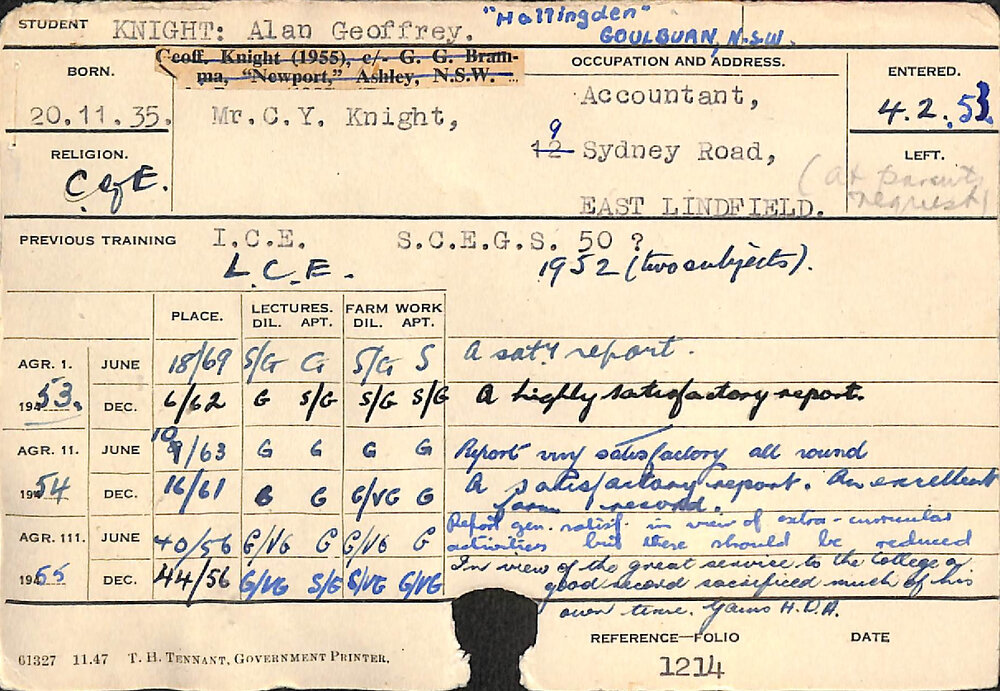 STUDENT KNIGHT: Alan Geoffrey. "Hallingden"
GOULBURN, N.S.W.
Geoff. Knight (1955), c/- G. G. Bram-
ma, "Newport," Ashley, N.S.W.
BORN. OCCUPATION AND ADDRESS. ENTERED.
20.11.35. Mr.C.Y. Knight, Accountant, 4.2.53.
9
12 Sydney Road,
RELIGION. LEFT.
C of E. (at parents
request)
EAST LINDFIELD.
PREVIOUS TRAINING I.C.E. S.C.E.G.S. 50 ?
L.C.E. 1952 (two subjects).
PLACE. LECTURES. FARM WORK
DIL. APT. DIL. APT.
AGR. 1. JUNE 18/69 S/G G S/G S A sat'y report.
1953. DEC. 6/62 G S/G S/G S/G A highly satisfactory report.
AGR. 11. JUNE 10/63 G G G G Report very satisfactory all round
1954 DEC. 16/61 G G G/VG G A satisfactory report. An excellent
farm record.
AGR. 111. JUNE 40/56 G/VG G G/VG G Report gen. satisf. in view of extra-curricular
activities but these should be reduced
1955 DEC. 44/56 G/VG S/G G/VG G/VG In view of the great service to the College a
good record sacrificed much of his
own time. Gains H.D.A.
REFERENCE—FOLIO DATE
61327 11.47 T. H. TENNANT, GOVERNMENT PRINTER. 1214